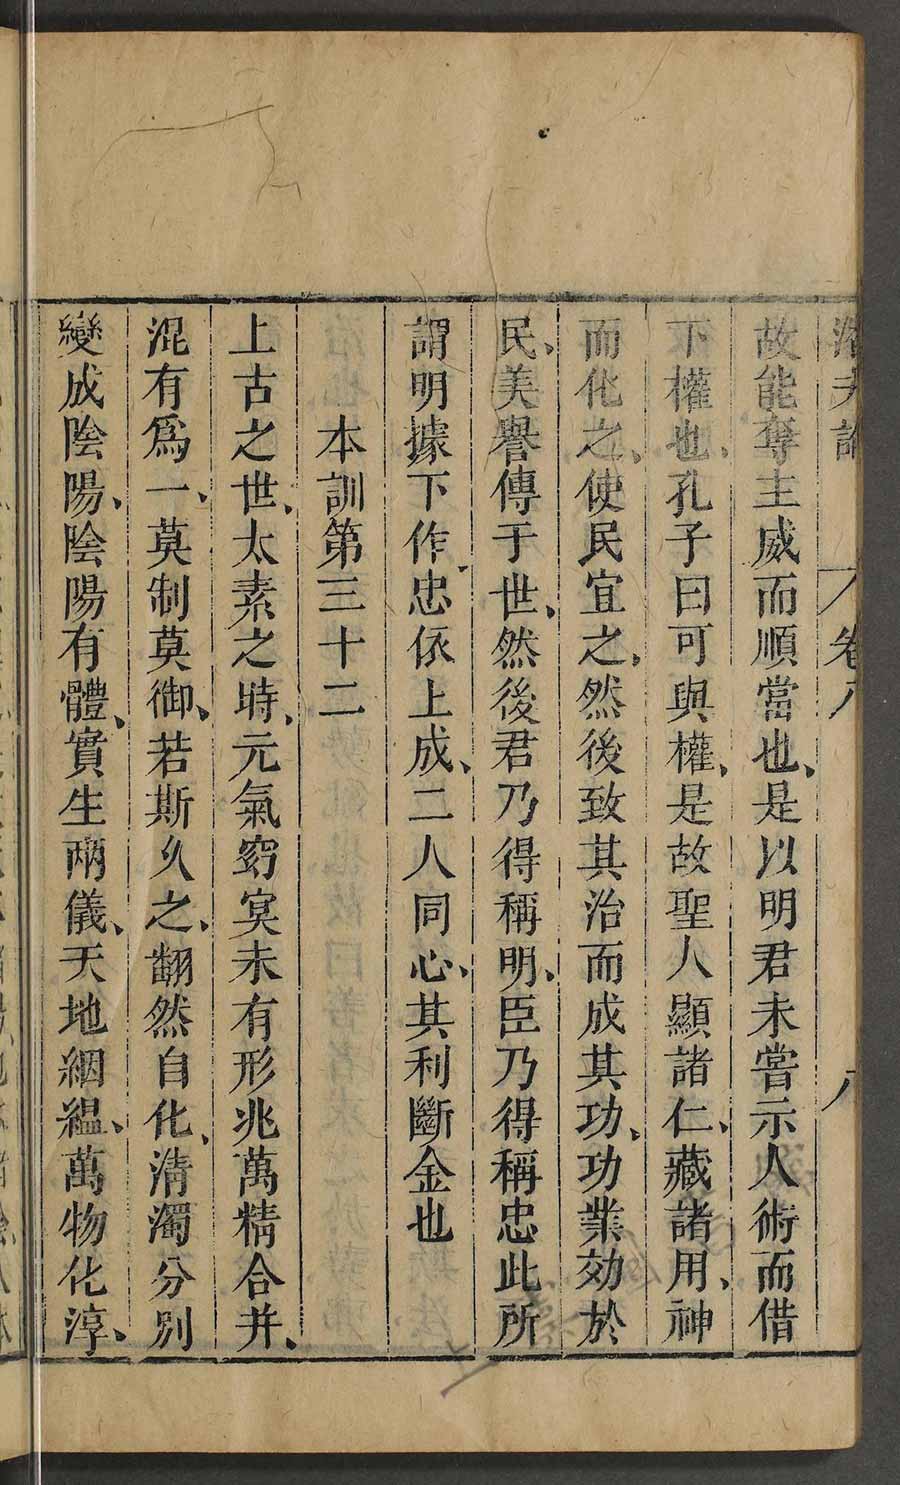 潛夫論 卷八 八
故能奪主威而順當也、是以明君未嘗示人術而借
下權也、孔子曰可與權、是故聖人顯諸仁、藏諸用、神
而化之、使民宜之、然後致其治而成其功、功業効於
民、美譽傳于世、然後君乃得稱明、臣乃得稱忠此所
謂明據下作、忠依上成、二人同心、其利斷金也
本訓第三十二
上古之世、太素之時、元氣窈冥未有形兆萬精合并、
混有爲一、莫制莫御、若斯久之、翻然自化、清濁分別
變成陰陽、陰陽有體、實生兩儀、天地絪縕、萬物化淳、